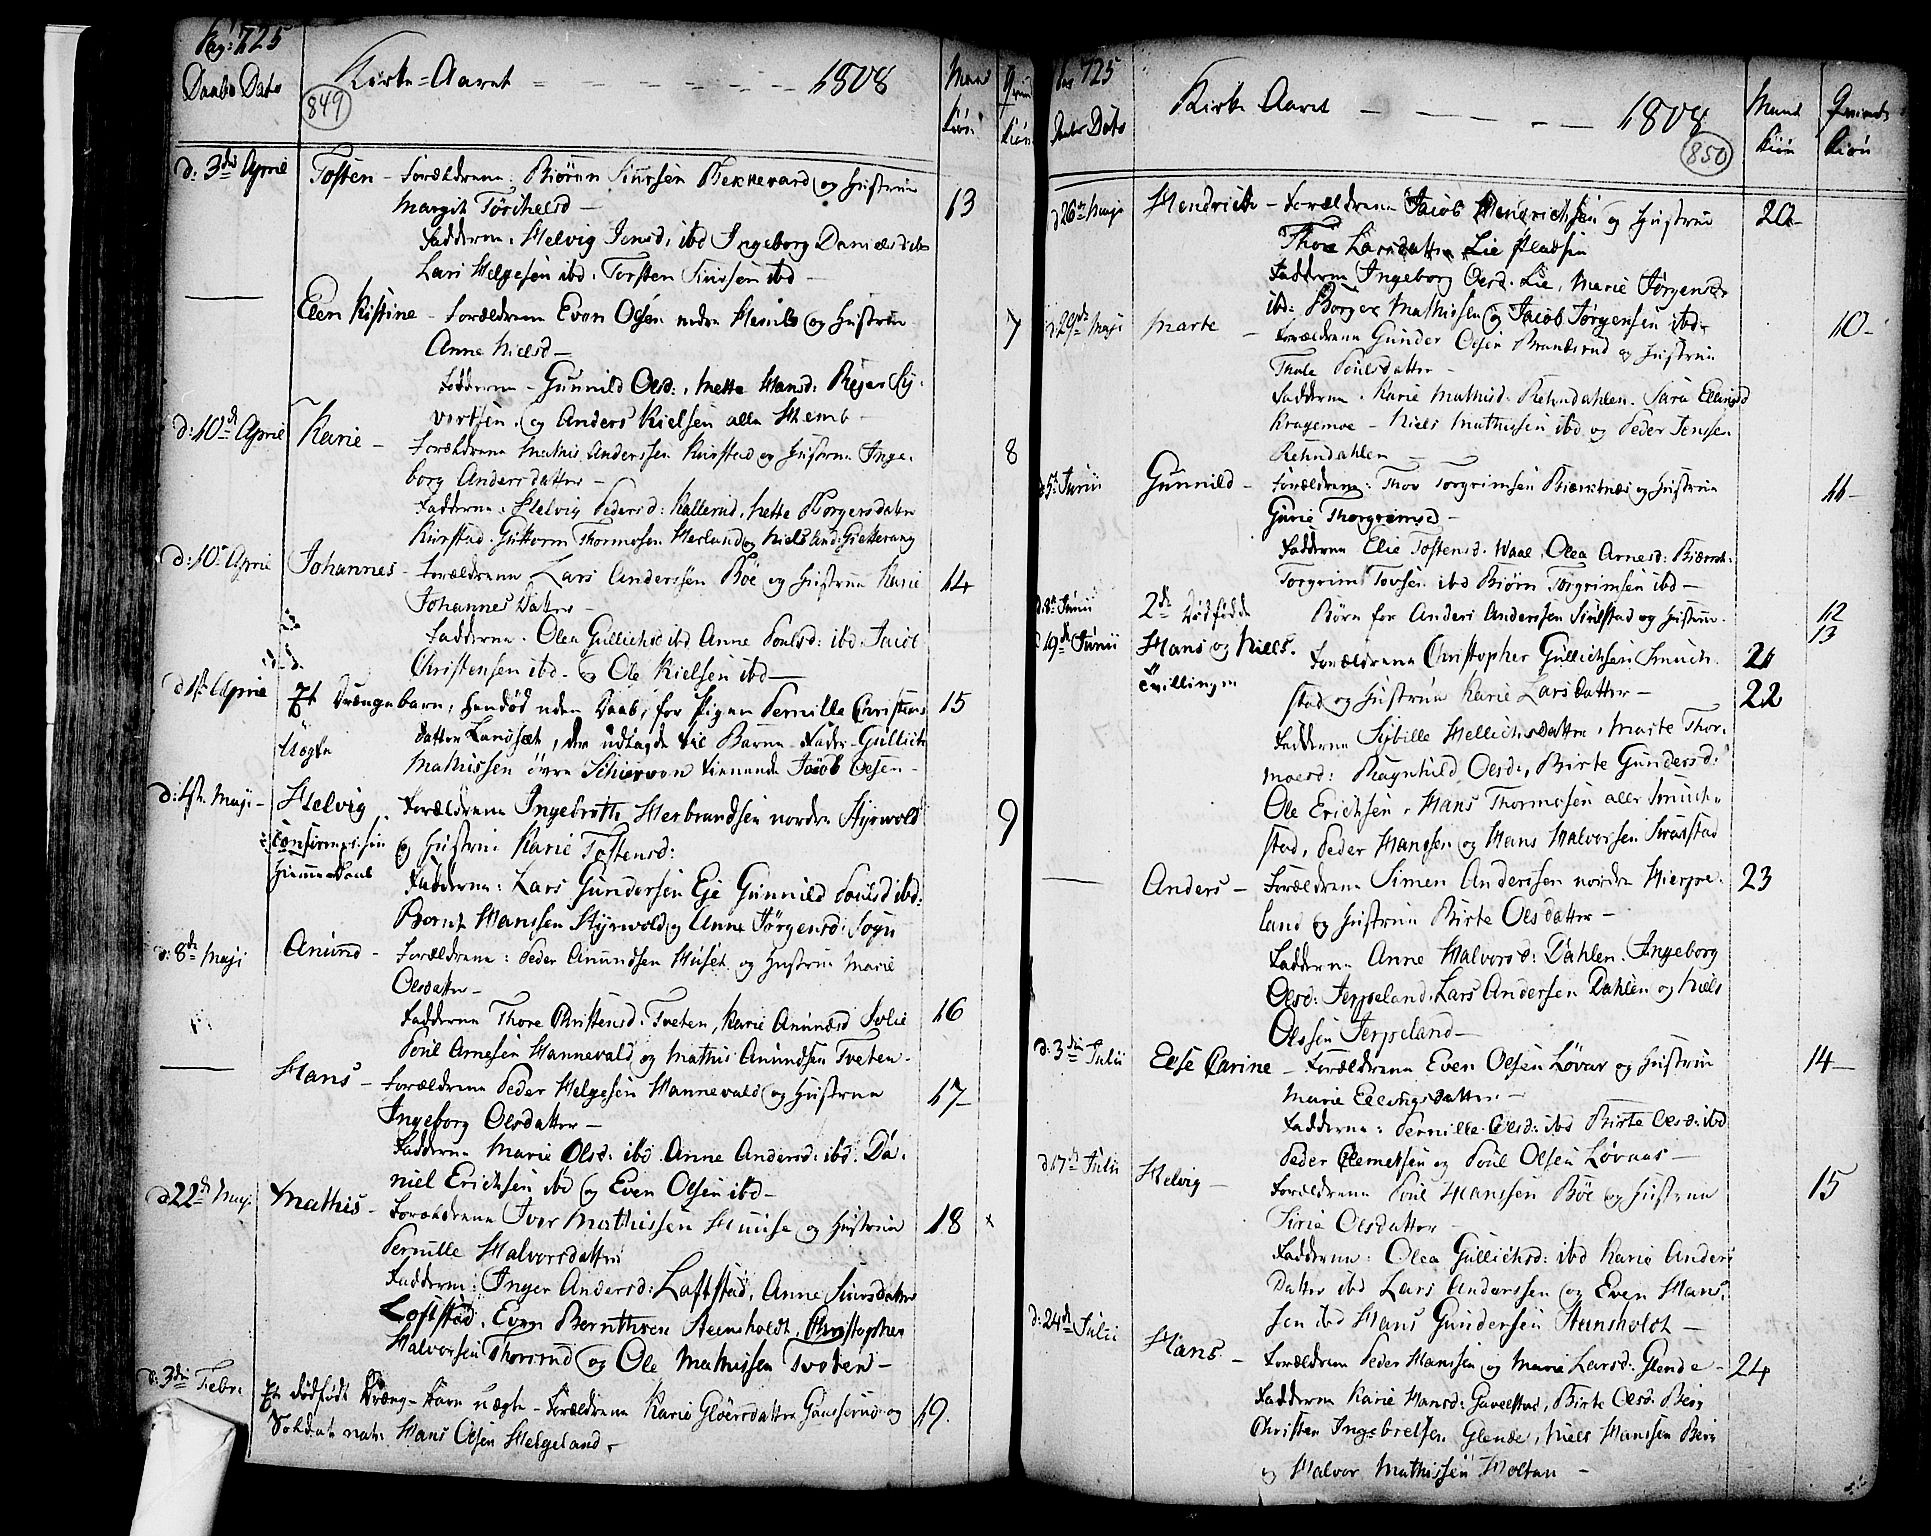 Pag: 725
Daabs Dato Kirke=Aaret - - - - - - 1808 Mand Kiøn Qvind Kiøn
849
d: 3die April Tosten - Forældrene: Biørun Siursen Bekkevard og Hustrue 13
Margit Torchelsd -
Fadderne: Helvig Jensd: ibd Ingeborg Danielsdatter
Lars Helgesen ibd: Torsten Siursen ibd -
Elen Kistine - Forældrene Even Olsen nedre og Hustrue 7
Anne Nielsd -
Fadderne - Gunnild Olsd:, Mette Hansd: Sy-
vertsen, og Anders Nielsen alle
d: 10de April Karie - Forældrene Mathis Anderssen Kiørstad og Hustrue Inge- 8
borg Andersdatter -
Fadderne: Helvig Pedersd: Kallerud, Mette Borgersdatter
Kiørstad Guttorm Thormosen og Niels And:
d: 10de April Johannes - Forældrene Lars Anderssen Bøe og Hustrue Karie 14
Johannes Datter -
Fadderne. Olea Gullichsd ibd Anne Poulsd: ibd. Jacob
Christensen ibd. og Ole Nielsen ibd -
April Et Drængebarn, hendød uden Daab, for Pigen Pernille Christens 15
Uægte datter Landsæt, der udlagde til Barne-Fader Gullich
Mathissen øvre tienende Jacob Olsen -
d: 1ste Maji - Helvig Forældrene Ingebreth Herbrandsen nordre Styrvold 9
og Hustrue Karie Tostensd:
Hiemmedaab Fadderne: Lars Gundersen Eje Gunnild Poulsd ibd:
Bernt Hanssen Styrvold og Anne Jørgensd: Sogn
d: 8de Maji Anund - Forældrene: Peder Anundsen Huset og Hustrue Marie
Olsdatter -
Fadderne Thore Tveten, Karie Anundsd 16
Poul Arnesen Hannevald og Mathis Anundsen Tveten -
Hans - Forældrene Peder Helgesen Hannevald og Hustrue 17-
Ingeborg Olsdatter -
Fadderne Marie Olsd: ibd. Anne Andersd: ibd. Da-
niel Erichsen ibd og Even Olsen ibd -
d 22de Maji Mathis - Forældrene Iver Mathissen og Hustrue 18 x
Pernille Halvorsdatter
Fadderne: Inger Andersd: Loftstad, Anne Siursdatter
Loftstad, Even Bernthsen Steensholdt, Christopher
Halvorsen Thorsrud og Ole Mathissen Tveten -
d: 3die Febr: Et dødfødt Dræng-Barn uægte - Forældrene Karie Gloersdatter og 19.
Soldat nat: Hans Olsen Helgeland -
Pag 725
Daabs Dato Kirke Aaret - - - - 1808 Mand Kiøn Qvinde Kiøn
850
d 26de Maji Hendrich - Forældrene Jacob Hendrichsen og Hustrue 20-
Thore Larsdatter Lie Pladsen
Fadderne Ingeborg Olsd. Lie, Marie Jørgensd:
ibd: Borger Mathissen og Jacob Jørgensen ibd -
d 29de Maji Marte - Forældrene Gunder Olsen Brandsrud og Hustrue 10-
Thale Poulsdatter -
Fadderne. Karie Mathisd: Rehndahlen. Sara Ellingsd
Kragemoe - Niels Mathissen ibd og Peder Jenssen
Rehndahlen -
5te Junii Gunnild - Forældrene: Thov Torgrimsen Biærtnæs og Hustrue 11-
Gurie Thorgrimsd -
Fadderne Elie Tostensd. Waae, Olea Arnesd:
Torgrim Tovsen ibd Biørn Torgrimsen ibd -
d: 8de Junii 2de Dødfødde Børn for Anders Anderssen og Hustrue. 12 13
19de Junii Hans og Niels. Forældrene Christopher Gullichsen 21
Tvillinger stad og Hustrue Karie Larsdatter - 22
Fadderne Sybille Hellichsdatter, Marte Thor-
moesd: Ragnhild Olsd:, Birte Gundersd:
Ole Erichsen, Hans Thormosen alle
stad, Peder Hanssen og Hans Halvorsen
Anders - Forældrene Simen Anderssen nordre Hierpe- 23
land og Hustrue Birte Olsdatter -
Fadderne Anne Halvorsd: Dahlen. Ingeborg
Olsd: Jerpeland. Lars Andersen Dahlen og Niels
Olssen Jerpeland -
d: 3die Julii Else Carine - Forældrene Even Olsen Løvaas og Hustrue 14-
Marie Ellingsdatter -
Fadderne: Pernille Olsd: ibd Birte Olsd: ibd
Peder Clemetsen og Poul Olsen Løvaas -
d 17de Julii Helvig - Forældrene Poul Hanssen Bøe og Hustrue 15
Sirie Olsdatter -
Fadderne: Olea Gullichsd: ibd Karie Anders
Datter ibd Lars Anderssen og Even Hans-
sen ibd Hans Gundersen Stensholdt -
d: 24de Julii Hans - Forældrene Peder Hanssen og Marie Larsd: Glende - 24
Fadderne Karie Hansd: Gavelstad, Birte Olsd: Berg
Christen Ingebretsen Glende, Niels Hanssen Berg
og Halvor Mathissen Holtan -